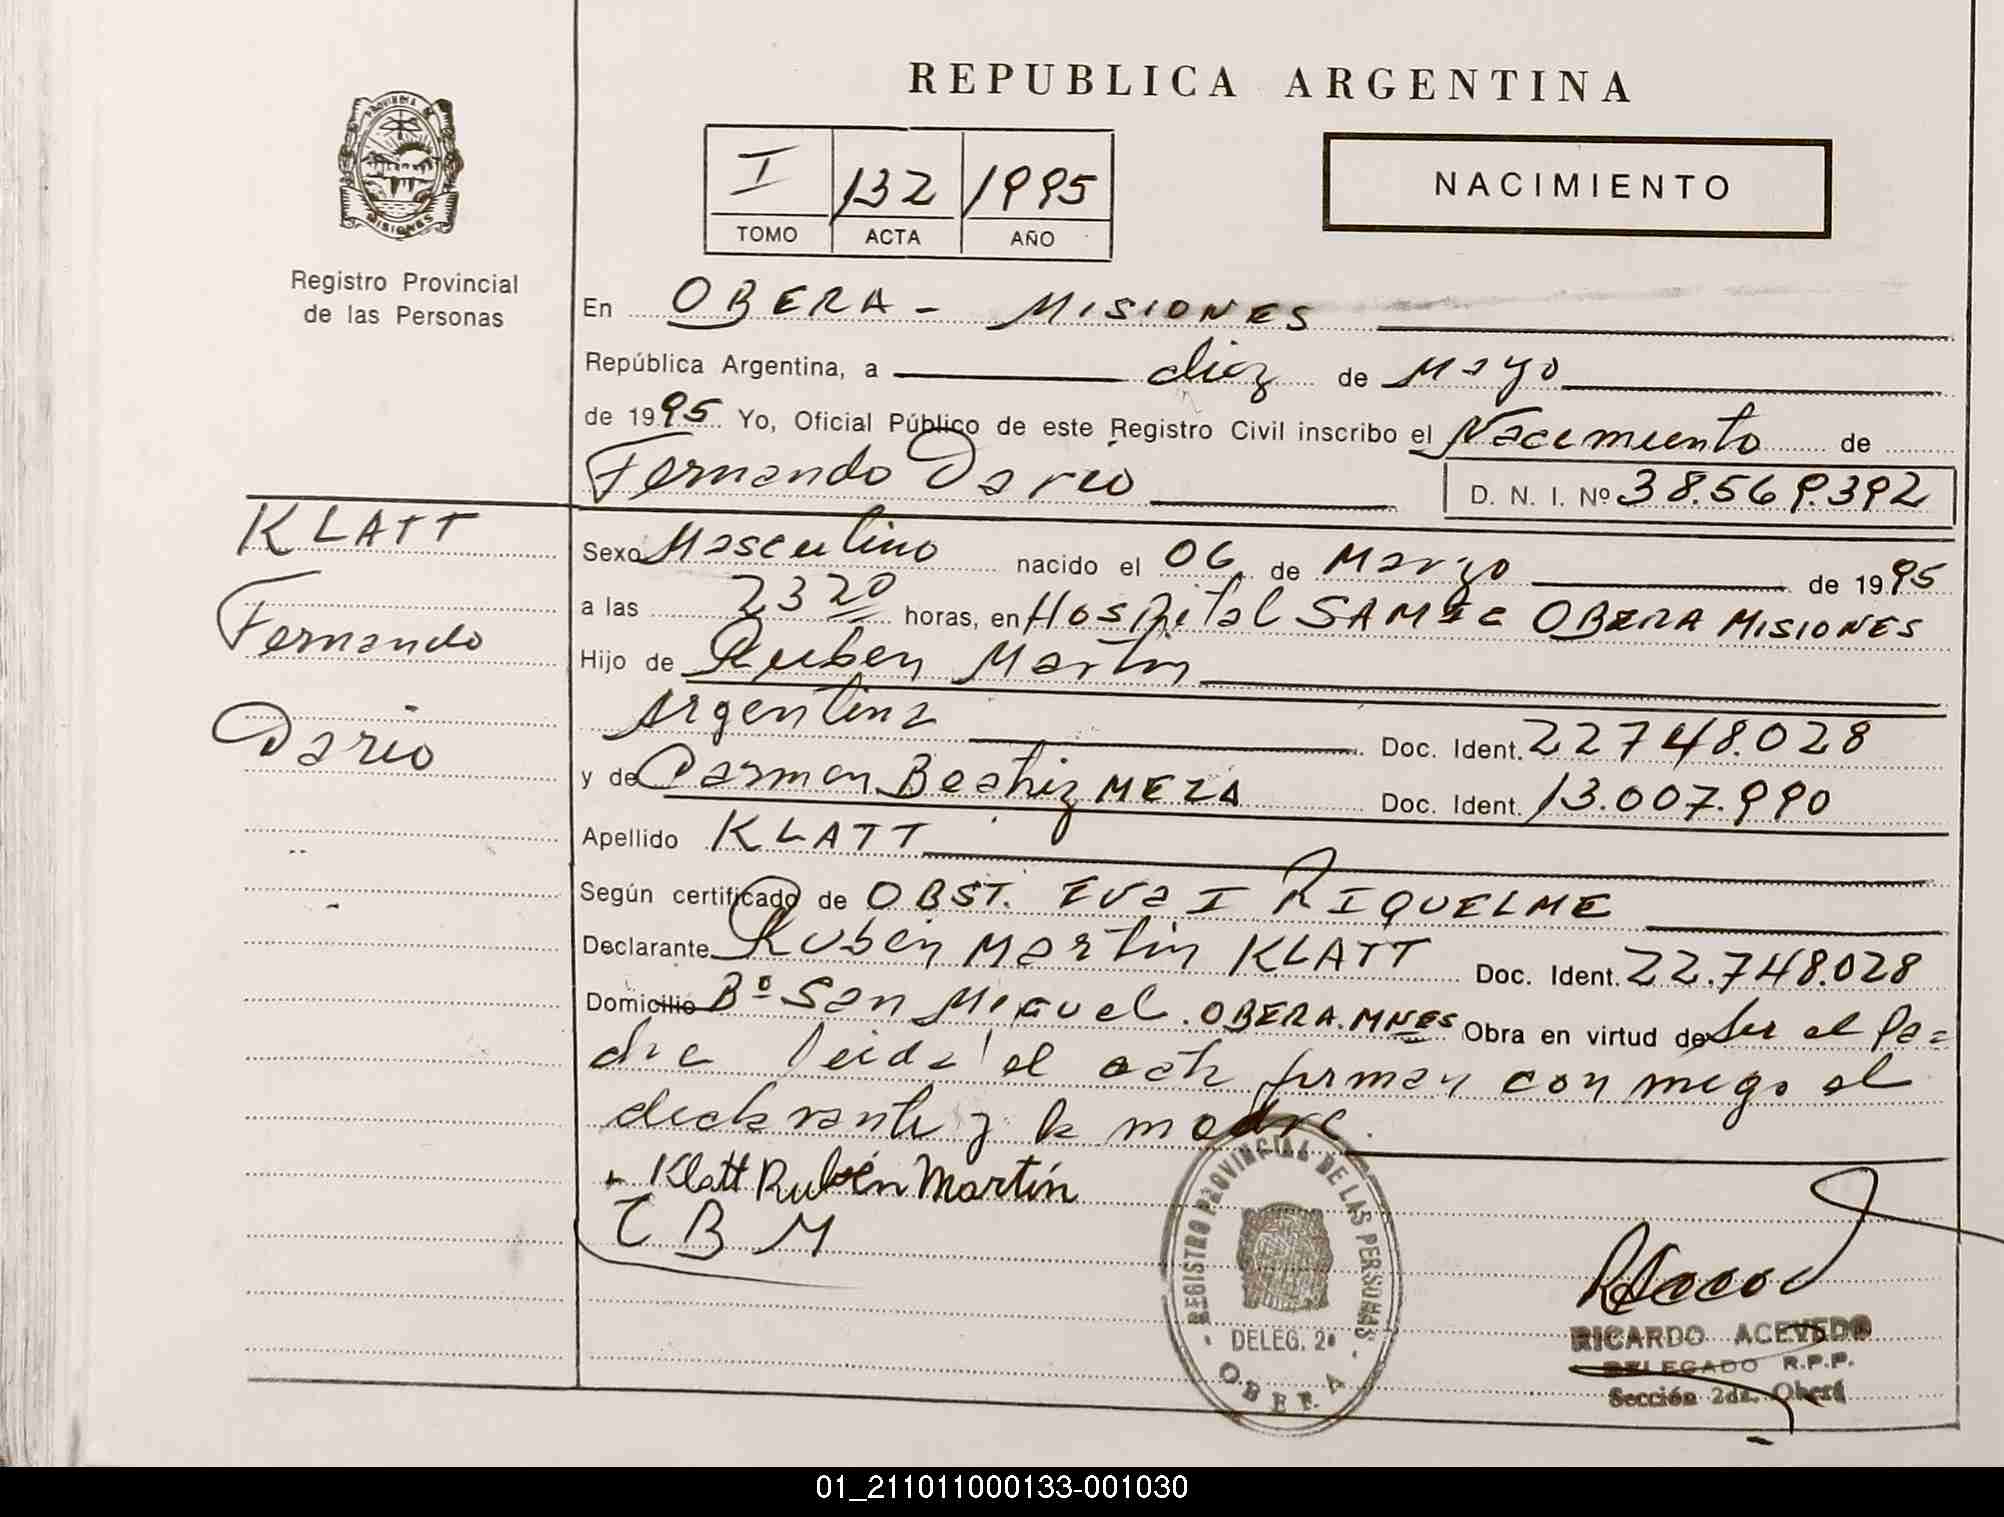 REPUBLICA ARGENTINA
PROVINCIA DE
MISIONES
Registro Provincial
de las Personas
I 132 1995
TOMO ACTA AÑO
NACIMIENTO
En OBERA - MISIONES
República Argentina, a diez de Mayo
de 1995 Yo, Oficial Público de este Registro Civil inscribo el Nacimiento de
Fernando Dario D. N. I. Nº 38.569.392
KLATT
Fernando
Dario
Sexo Masculino nacido el 06 de Marzo de 1995
a las 23 20 horas, en Hospital SAMIC OBERA MISIONES
Hijo de Ruben Martin
Argentina Doc. Ident. 22748.028
y de Carmen Beatriz MEZA Doc. Ident. 13.007.990
Apellido KLATT
Según certificado de OBST. EVa I RIQUELME
Declarante Ruben Martin KLATT Doc. Ident. 22.748.028
Domicilio Bº San Miguel. OBERA. MNES Obra en virtud de ser el Pa=
dre leida el acta firman conmigo el
declarante y la madre.
Klatt Rubén Martín
C B M
REGISTRO PROVINCIAL DE LAS PERSONAS
DELEG. 2ª
OBERA
RICARDO ACEVEDO
DELEGADO R.P.P.
Sección 2da. Oberá
01_211011000133-001030